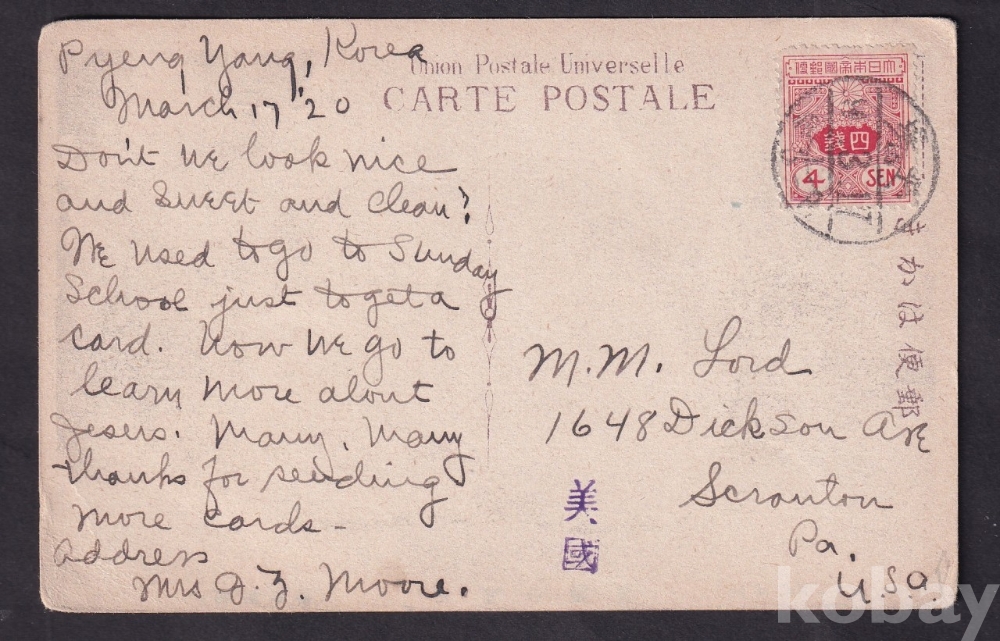 Pyeng Yang, Korea
March 17 '20
Don't we look nice
and sweet and clean?
We used to go to Sunday
School just to get a
card. Now we go to
learn more about
Jesus. Many, Many
thanks for sending
more cards -
address
Mrs J. Z. Moore.
Union Postale Universelle
CARTE POSTALE
便郵國帝本日大
錢四
4 SEN
きかは便郵
M. M. Lord
1648 Dickson Ave
Scranton
Pa.
U.S.A.
美國
kobay